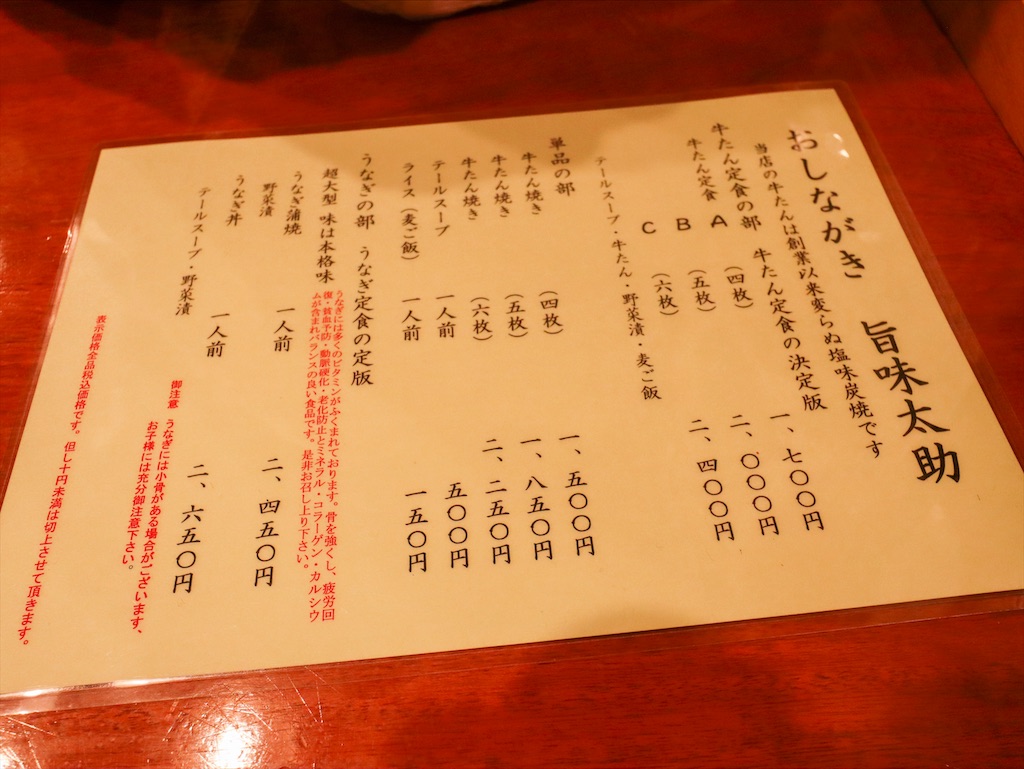 おしながき　旨味太助
当店の牛たんは創業以来変らぬ塩味炭焼です
牛たん定食の部　牛たん定食の決定版
牛たん定食　A　（四枚）　一、七〇〇円
B　（五枚）　二、〇〇〇円
C　（六枚）　二、四〇〇円
テールスープ・牛たん・野菜漬・麦ご飯
単品の部
牛たん焼き　（四枚）　一、五〇〇円
牛たん焼き　（五枚）　一、八五〇円
牛たん焼き　（六枚）　二、二五〇円
テールスープ　一人前　五〇〇円
ライス（麦ご飯）　一人前　一五〇円
うなぎの部　うなぎ定食の定版
超大型　味は本格味
うなぎには多くのビタミンがふくまれております。骨を強くし、疲労回
復・貧血予防・動脈硬化・老化防止とミネラル・コラーゲン・カルシウ
ムが含まれバランスの良い食品です。是非お召し上り下さい。
うなぎ蒲焼　一人前　二、四五〇円
野菜漬
うなぎ丼　一人前　二、六五〇円
テールスープ・野菜漬
御注意　うなぎには小骨がある場合がございます、
お子様には充分御注意下さい。
表示価格全品税込価格です。但し十円未満は切上させて頂きます。